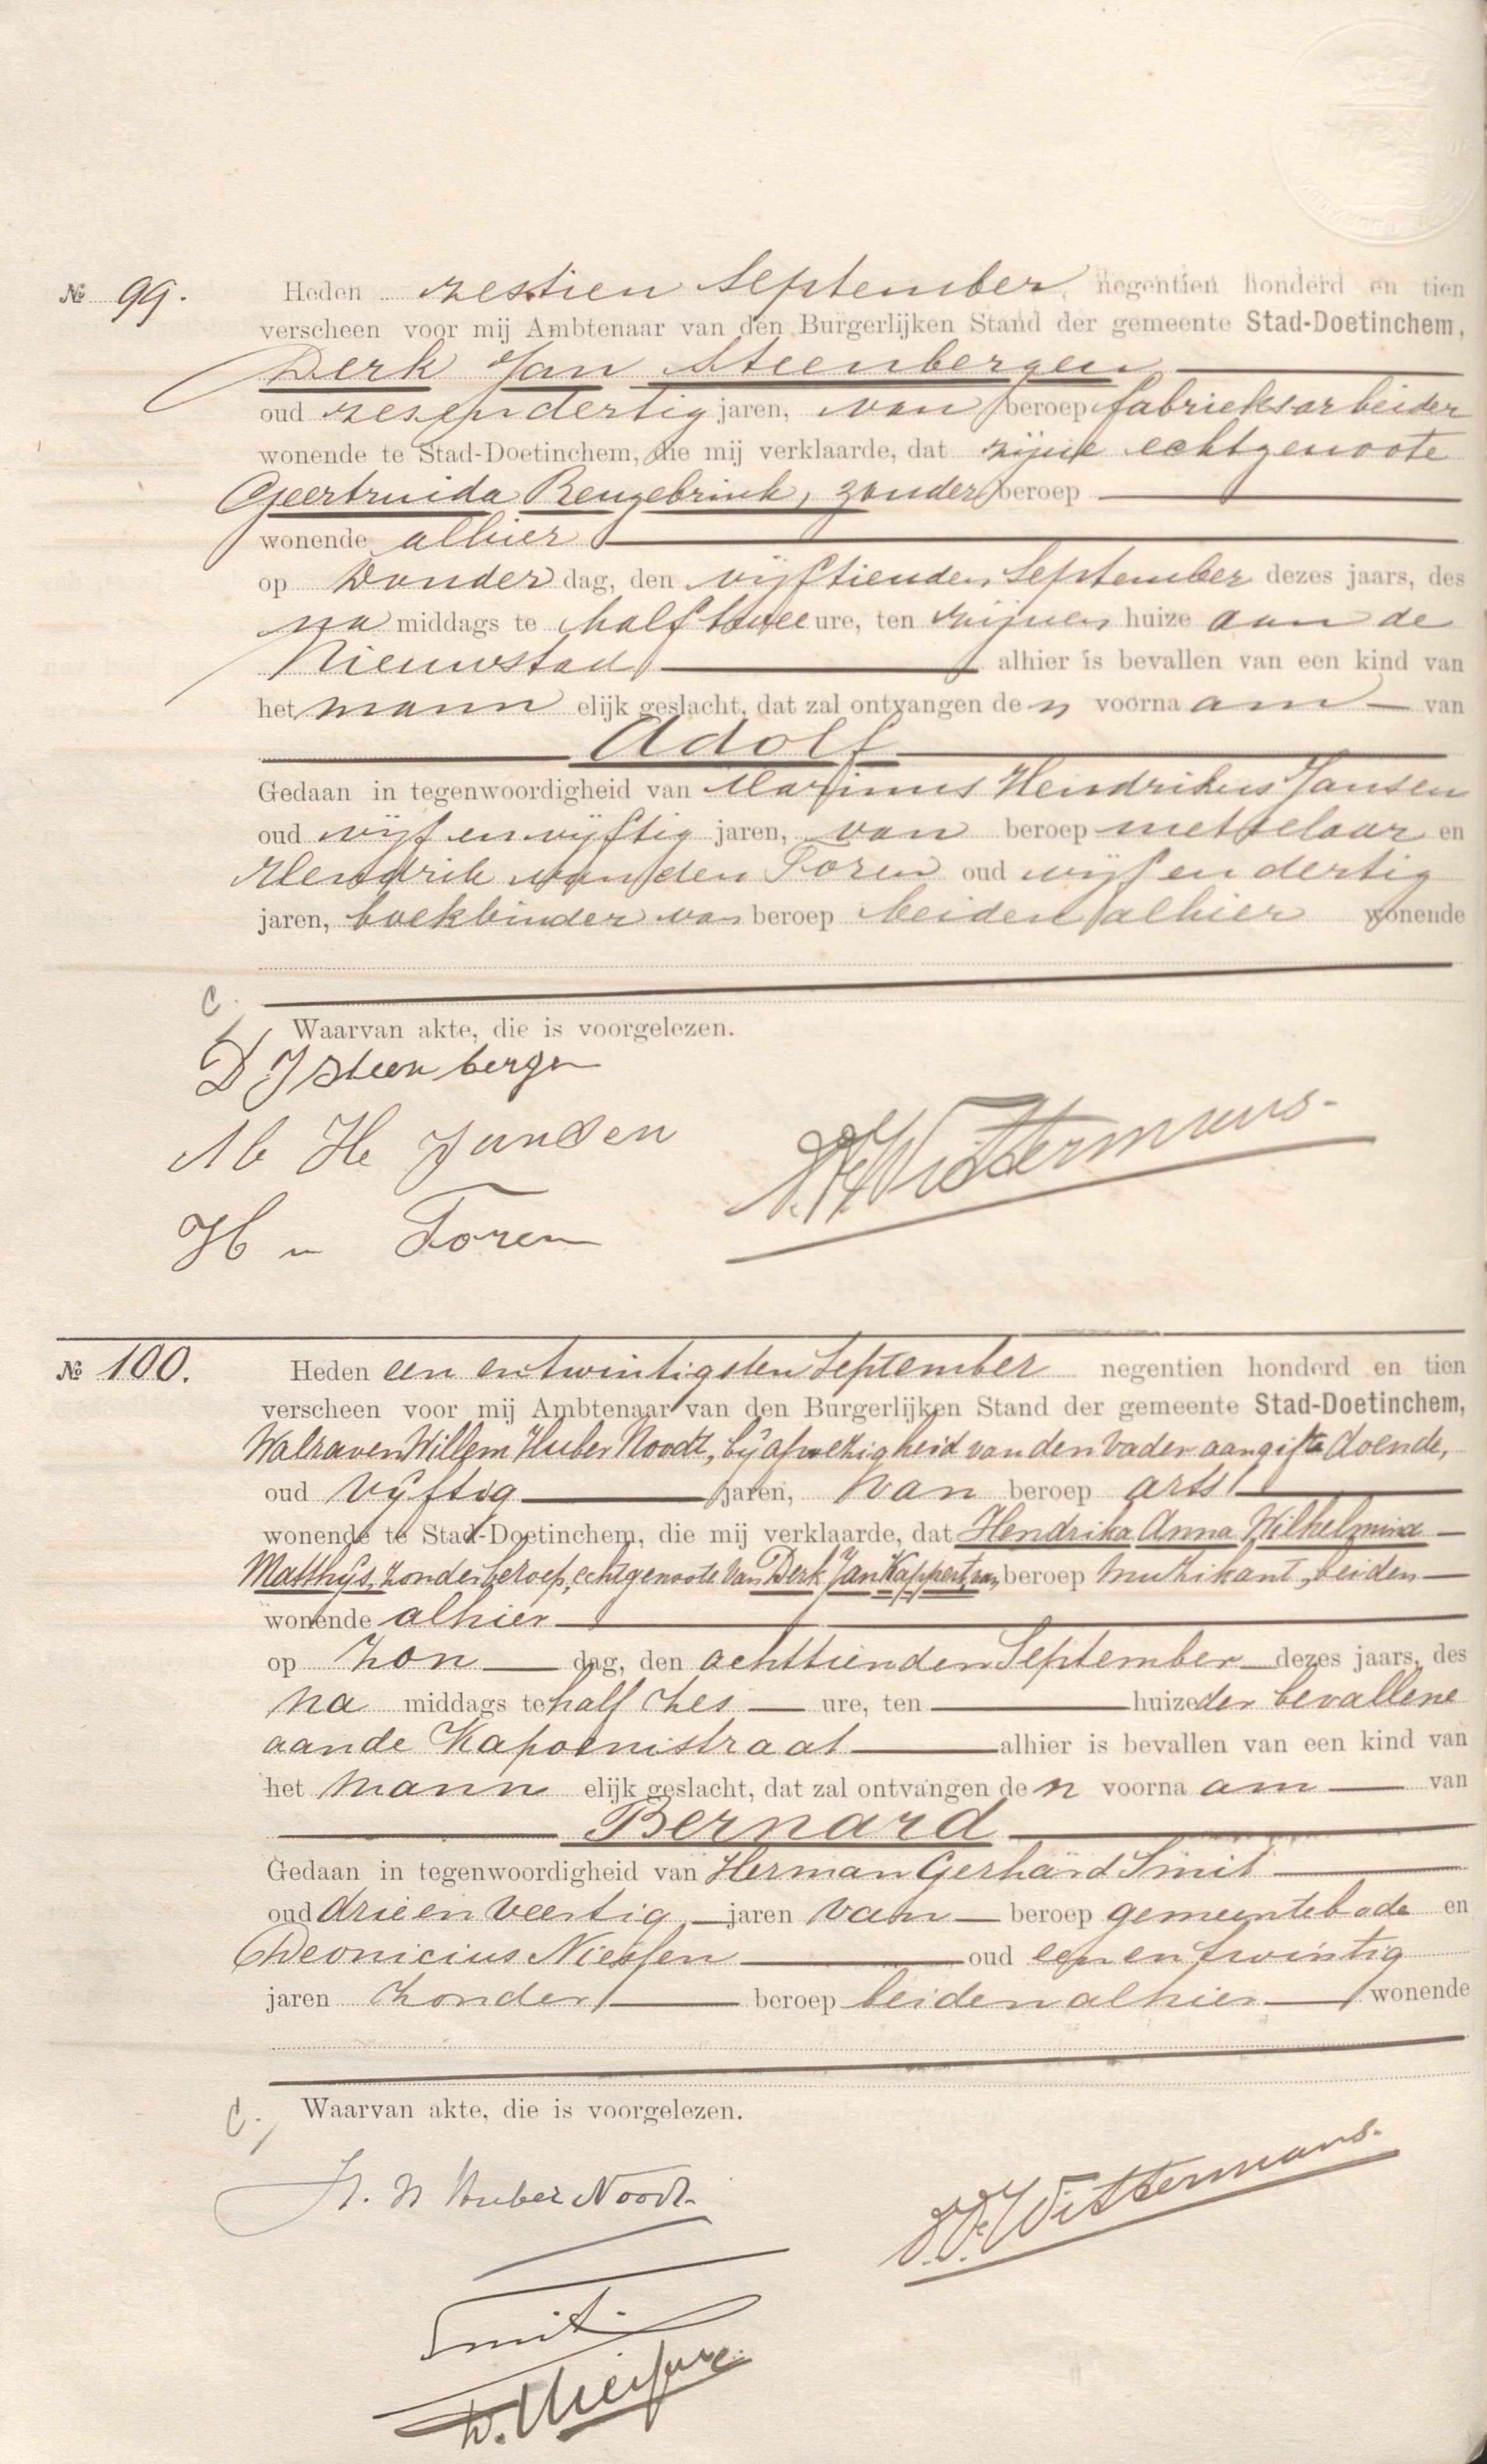 № 99. Heden zestien September, negentien honderd en tien
verscheen voor mij Ambtenaar van den Burgerlijken Stand der gemeente Stad-Doetinchem,
Derk Jan Steenbergen
oud zesendertig jaren, van beroep fabrieksarbeider
wonende te Stad-Doetinchem, die mij verklaarde, dat zijne echtgenoote
Geertruida Rengebrink, zonder beroep
wonende alhier
op Donder dag, den vijftienden September dezes jaars, des
na middags te half twee ure, ten zijnen huize aan de
Nieuwstad alhier is bevallen van een kind van
het mann elijk geslacht, dat zal ontvangen de n voorna am van
Adolf
Gedaan in tegenwoordigheid van Marinus Hendrikus Jansen
oud vijf en vijftig jaren, van beroep metselaar en
Hendrik van den Toren oud vijf en dertig
jaren, boekbinder van beroep beiden alhier wonende
C.
Waarvan akte, die is voorgelezen.
D J Steenbergen
M H Jansen
H v Toren
Wittermans.
№ 100. Heden een en twintigsten September negentien honderd en tien
verscheen voor mij Ambtenaar van den Burgerlijken Stand der gemeente Stad-Doetinchem,
Walraven Willem Huber Noodt, bij afwezigheid van den Vader aangifte doende,
oud vijftig jaren, van beroep arts
wonende te Stad-Doetinchem, die mij verklaarde, dat Hendrika Anna Wilhelmina
Matthijs, zonder beroep, echtgenoote van Derk Jan Kappert, van beroep muzikant, beiden
wonende alhier
op Zon dag, den achttienden September dezes jaars, des
na middags te half zes ure, ten huize der bevallene
aan de Kapoenistraat alhier is bevallen van een kind van
het mann elijk geslacht, dat zal ontvangen de n voorna am van
Bernard
Gedaan in tegenwoordigheid van Herman Gerhard Smit
oud drie en veertig jaren van beroep gemeentebode en
Deonicius Niessen oud een en twintig
jaren zonder beroep beiden alhier wonende
C.
Waarvan akte, die is voorgelezen.
Huber Noodt.
Wittermans.
Smit.